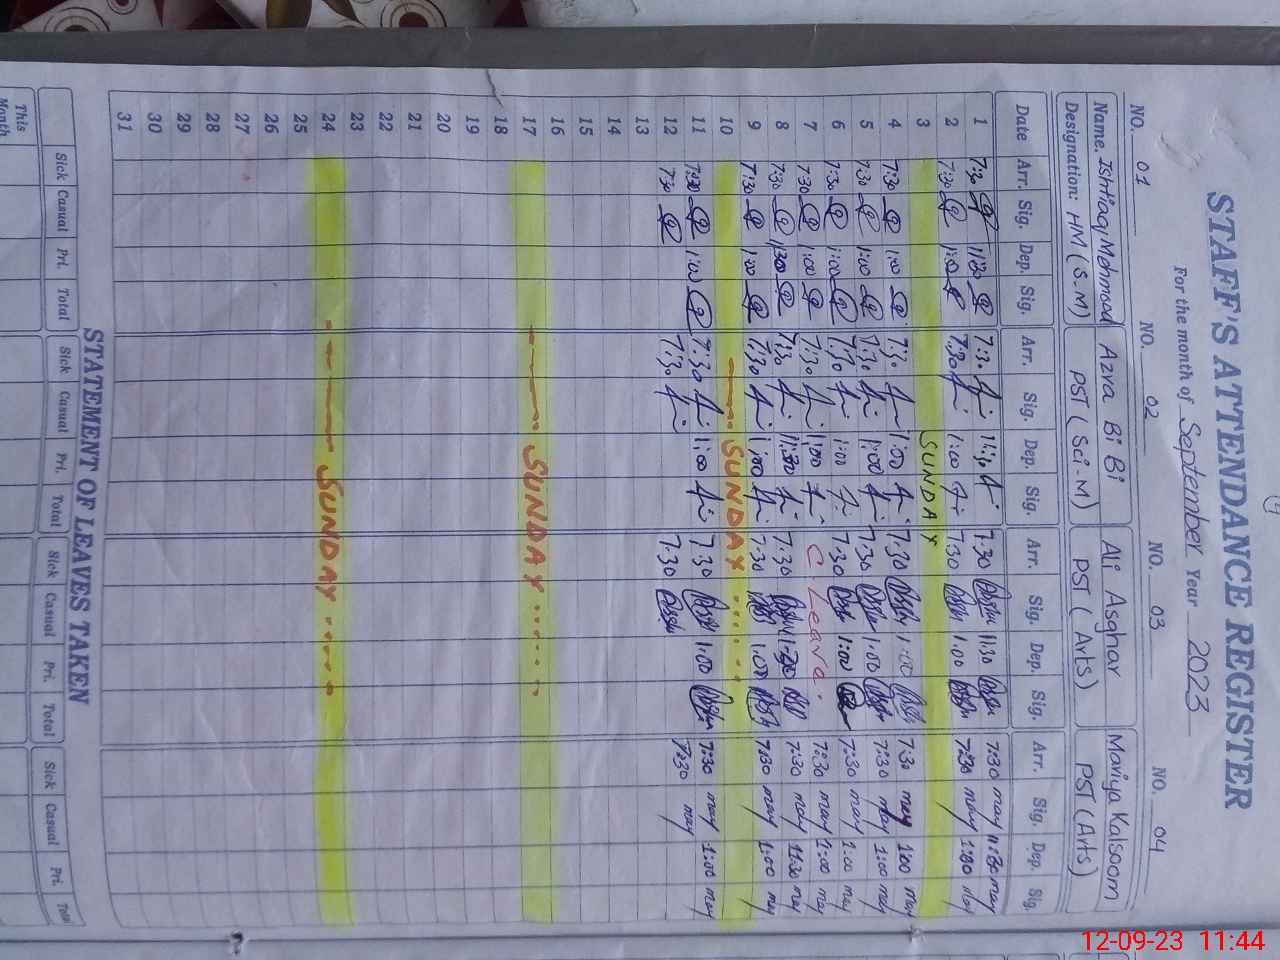 STAFF'S ATTENDANCE REGISTER
For the month of September Year 2023
NO. 01 NO. 02 NO. 03 NO. 04
Name. Ishtiaq Mehmood Azra Bi Bi Ali Asghar Mariya Kalsoom
Designation: HM (S-M) PST (Sci-M) PST (Arts) PST (Arts)
Date Arr. Sig. Dep. Sig. Arr. Sig. Dep. Sig. Arr. Sig. Dep. Sig. Arr. Sig. Dep. Sig.
1 7:30 11:30 7:30 11:30 7:30 11:30 7:30 may 11:30 may
2 7:30 1:00 7:30 1:00 7:30 1:00 7:30 may 1:00 may
3 SUNDAY
4 7:30 1:00 7:30 1:00 7:30 1:00 7:30 may 1:00 may
5 7:30 1:00 7:30 1:00 7:30 1:00 7:30 may 1:00 may
6 7:30 1:00 7:30 1:00 7:30 1:00 7:30 may 1:00 may
7 7:30 1:00 7:30 1:00 C Leave. 7:30 may 1:00 may
8 7:30 11:30 7:30 11:30 7:30 7:30 may 11:30 may
9 7:30 1:00 7:30 1:00 7:30 1:00 7:30 may 1:00 may
10 SUNDAY
11 7:30 1:00 7:30 1:00 7:30 1:00 7:30 may 1:00 may
12 7:30 7:30 7:30 7:30 may
13
14
15
16
17 SUNDAY
18
19
20
21
22
23
24 SUNDAY
25
26
27
28
29
30
31
STATEMENT OF LEAVES TAKEN
Sick Casual Pri. Total Sick Casual Pri. Total Sick Casual Pri. Total Sick Casual Pri. Total
This Month
12-09-23 11:44